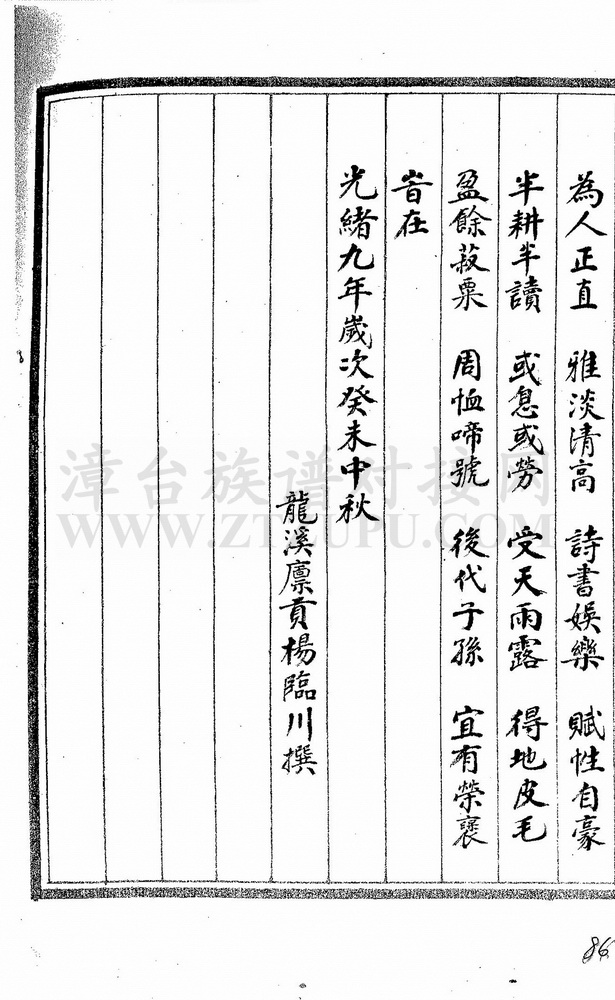 為人正直 雅淡清高 詩書娛樂 賦性自豪
半耕半讀 或息或勞 受天雨露 得地皮毛
盈餘菽粟 周恤啼號 後代子孫 宜有榮褒
旹在
光緒九年歲次癸未中秋
龍溪廪貢楊臨川撰
漳台族谱对接网
WWW.ZTZUPU.COM
86